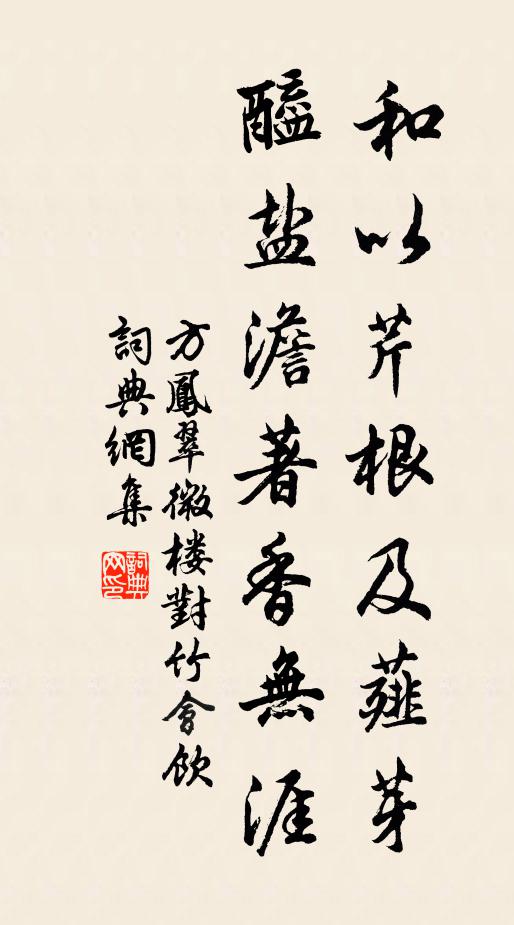 和以芹根及薤芽
醯盐澹著香無涯
方鳳翠微楼對竹會飲
詞典網集
詞典網印